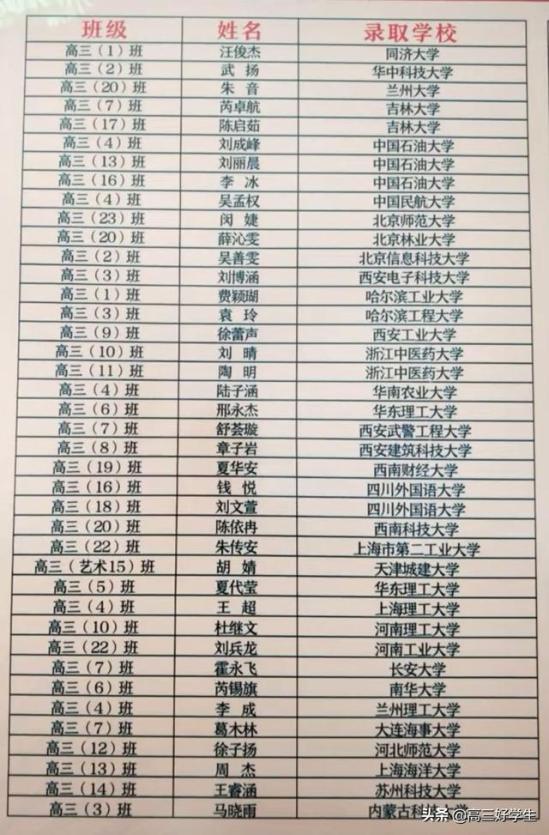 班级 姓名 录取学校
高三（1）班 汪俊杰 同济大学
高三（2）班 武扬 华中科技大学
高三（20）班 朱音 兰州大学
高三（7）班 芮卓航 吉林大学
高三（17）班 陈启茹 吉林大学
高三（4）班 刘成峰 中国石油大学
高三（13）班 刘丽晨 中国石油大学
高三（16）班 李冰 中国石油大学
高三（4）班 吴孟权 中国民航大学
高三（23）班 闵婕 北京师范大学
高三（20）班 薛沁雯 北京林业大学
高三（2）班 吴善雯 北京信息科技大学
高三（3）班 刘博涵 西安电子科技大学
高三（1）班 费颖瑚 哈尔滨工业大学
高三（3）班 袁玲 哈尔滨工程大学
高三（9）班 徐蕾声 西安工业大学
高三（10）班 刘晴 浙江中医药大学
高三（11）班 陶明 浙江中医药大学
高三（4）班 陆子涵 华南农业大学
高三（6）班 邢永杰 华东理工大学
高三（7）班 舒荟璇 西安武警工程大学
高三（8）班 章子岩 西安建筑科技大学
高三（19）班 夏华安 西南财经大学
高三（16）班 钱悦 四川外国语大学
高三（18）班 刘文萱 四川外国语大学
高三（20）班 陈依冉 西南科技大学
高三（22）班 朱传安 上海市第二工业大学
高三（艺术15）班 胡婧 天津城建大学
高三（5）班 夏代莹 华东理工大学
高三（4）班 王超 上海理工大学
高三（10）班 杜继文 河南理工大学
高三（22）班 刘兵龙 河南工业大学
高三（7）班 霍永飞 长安大学
高三（6）班 芮锡旗 南华大学
高三（4）班 李成 兰州理工大学
高三（7）班 葛木林 大连海事大学
高三（12）班 徐子扬 河北师范大学
高三（13）班 周杰 上海海洋大学
高三（14）班 王睿涵 苏州科技大学
高三（3）班 马晓雨 内蒙古科技大学
头条@高三好学生